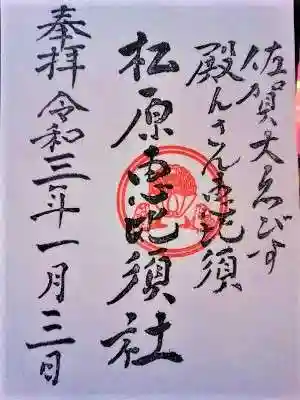 佐賀大ゑびす
殿んさんゑ比須
松原恵比須社
奉拝 令和三年一月三日